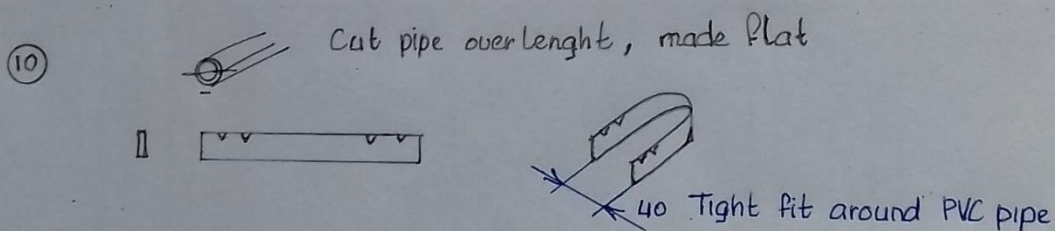 10 Cut pipe over lenght, made flat
40 Tight fit around PVC pipe